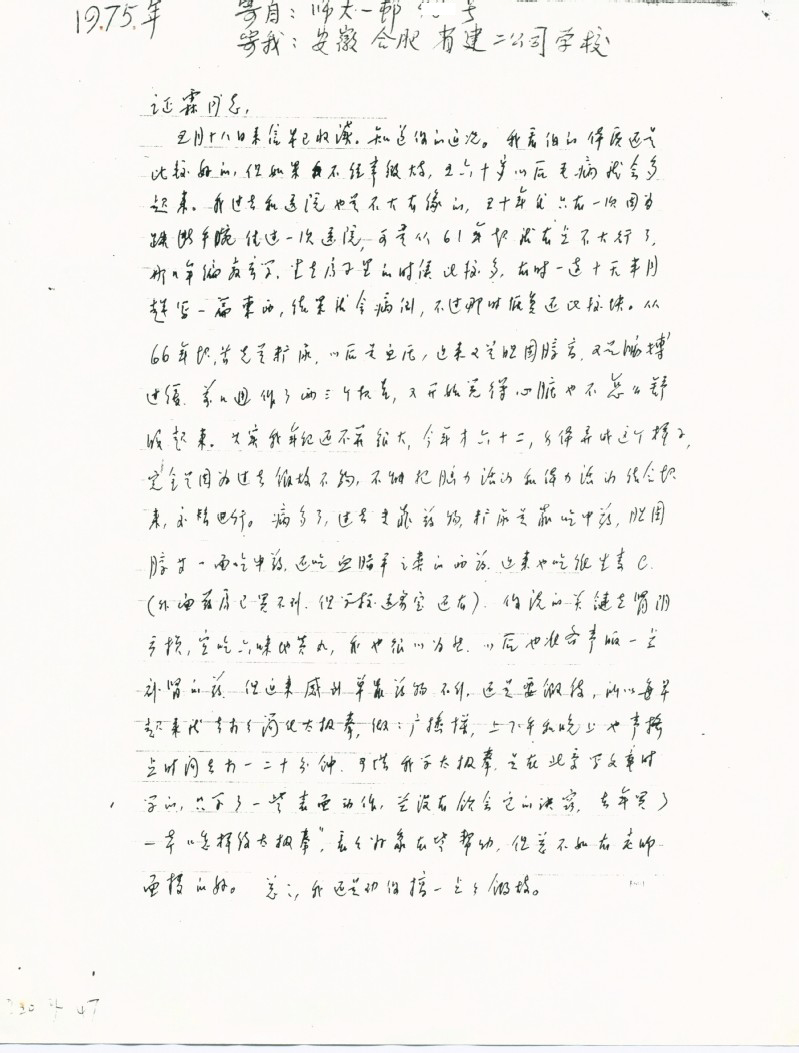 1975.年 寄自：师大一邨
寄我：安徽合肥省建二公司学校
证霖同志,
五月十八日来信早已收读。知道你的近况。我看你的体质还是
比较好的，但如果不经常锻炼，五六十岁以后毛病就会多
起来。我过去和医院也是不大有缘的，五十年代只有一次因为
跌断手腕住过一次医院，可是从61年起就有点不大行了，
那几年编教科，坐在房子里的时候比较多，有时一连十天半月
赶写一篇东西，结果就会病倒，不过那时恢复还比较快。从
66年起，首先是肝原，以后是血压，近来又是胆固醇高，又是脉搏
过缓，前几週作了两三个检查，又开始觉得心脏也不怎么舒
服起来。其实我年纪还不算很大，今年才六十二，身体弄成这个样子，
完全是因为过去锻炼不够，不能把脑力活动和体力活动结合起
来，交替进行。病多了，过去光靠药物，肝原是靠吃中药，胆固
醇高一面吃中药，还吃血脂平之类的西药，近来也吃维生素C.
(外面药房已买不到，但学校医务室还有)．你说的关键是肾阴
亏损，宜吃六味地黄丸，我也很以为然．以后也准备常服一点
补肾的药．但近来感到单靠药物不行，还是要锻炼，所以每早
起来就去打打简化太极拳，做做广播操，上下午和晚上也常抽
点时间去打一二十分钟．可惜我学太极拳，是在北京写文章时
学的，只学了一些表面动作，并没有领会它的诀窍，去年买了
一本"怎样练太极拳"，看看好象有些帮助，但总不如有老师
面授的好。总之，我还是劝你搞一点锻炼。